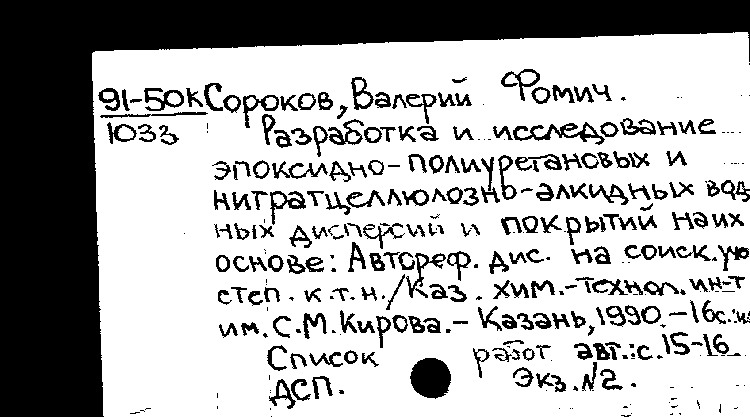 91-50к Сороков, Валерий Фомич.
1033 Разработка и исследование
эпоксидно-полиуретановых и
нитратцеллюлозно-алкидных вод
ных дисперсий и покрытий на их
основе: Автореф. дис. на соиск. уч
степ. к.т.н./Каз. хим.-технол. ин-т
им. С.М. Кирова.- Казань, 1990.-16с.
Список работ авт.: с.15-16
ДСП. Экз. №2.